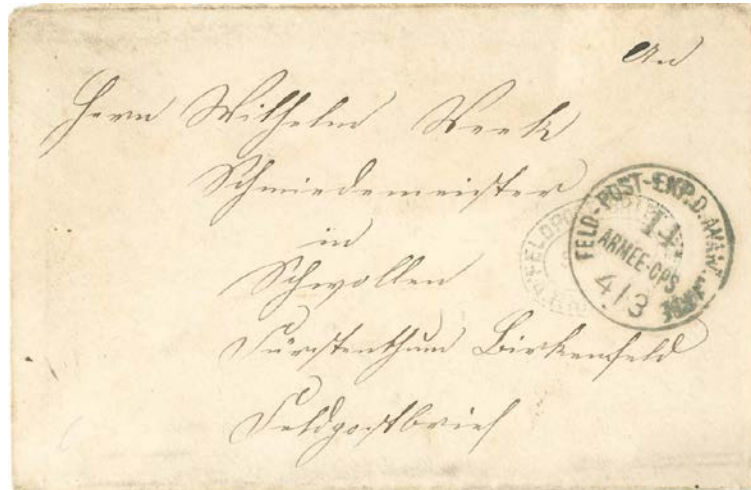 An
Herrn Wilhelm
Schmiedemeister
in
Schwollen
Fürstenthum Birkenfeld
Feldpostbrief
FELD-POST-EXP.D.AVANT.
14
ARMEE-CPS
4/3